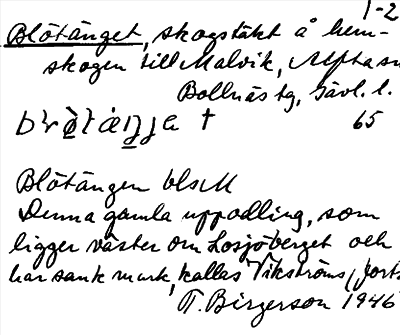 1-2
Blötänget, skogstäkt å hem-
skogen till Malvik, Alfta sn
Bollnäs tg, Gävl. l.
65
Blötängen bls M
Denna gamla uppodling, som
ligger väster om Losjöberget och
har sank mark, kallas Vikströms
T. Birgerson 1946